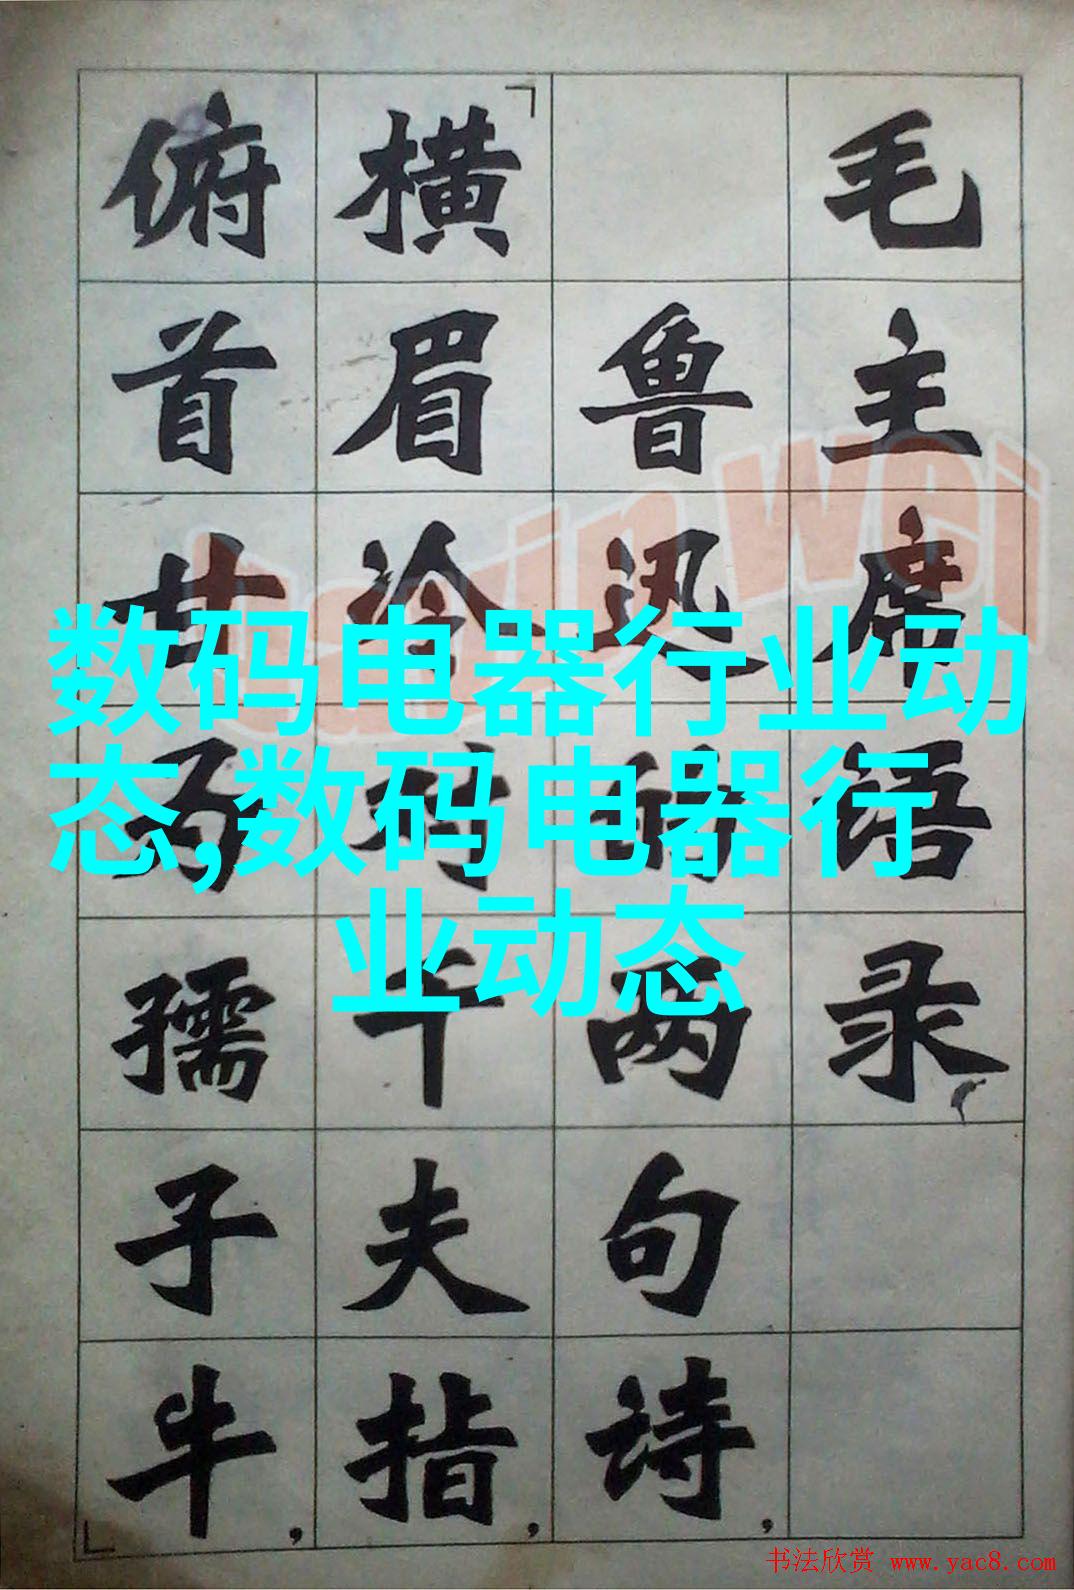 毛主席语录
鲁迅的两句诗，
﹁横眉冷对千夫指，
俯首甘为孺子牛，﹂
数码电器行业动
态,数码电器行
业动态
书法欣赏 www.yac8.com